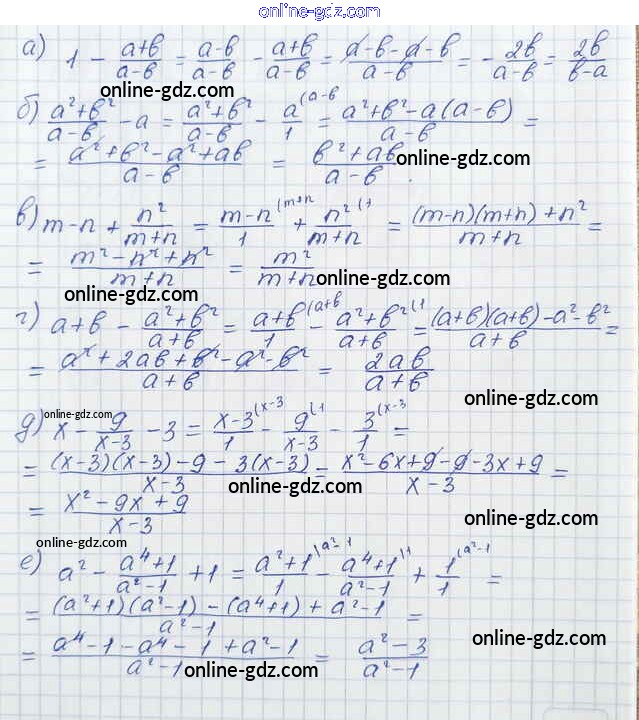 online-gdz.com
а) 1 - (a+b)/(a-b) = (a-b)/(a-b) - (a+b)/(a-b) = (a-b-a-b)/(a-b) = - 2b/(a-b) = 2b/(b-a)
б) (a²+b²)/(a-b) - a = (a²+b²)/(a-b) - a/1 ^(a-b = (a²+b²-a(a-b))/(a-b) =
= (a²+b²-a²+ab)/(a-b) = (b²+ab)/(a-b). online-gdz.com
online-gdz.com
в) m-n + n²/(m+n) = (m-n)/1 ^(m+n + n²/(m+n) ^(1 = ((m-n)(m+n)+n²)/(m+n) =
= (m²-n²+n²)/(m+n) = m²/(m+n) online-gdz.com
online-gdz.com
г) a+b - (a²+b²)/(a+b) = (a+b)/1 ^(a+b - (a²+b²)/(a+b) ^(1 = ((a+b)(a+b)-a²-b²)/(a+b) =
= (a²+2ab+b²-a²-b²)/(a+b) = 2ab/(a+b)
online-gdz.com
online-gdz.com
д) x - 9/(x-3) - 3 = (x-3)/1 ^(x-3 - 9/(x-3) ^(1 - 3/1 ^(x-3 =
= ((x-3)(x-3)-9-3(x-3))/(x-3) = (x²-6x+9-9-3x+9)/(x-3) =
online-gdz.com
= (x²-9x+9)/(x-3)
online-gdz.com
online-gdz.com
е) a² - (a⁴+1)/(a²-1) + 1 = (a²+1)/1 ^(a²-1 - (a⁴+1)/(a²-1) ^(1 + 1/1 ^(a²-1 =
= ((a²+1)(a²-1)-(a⁴+1)+a²-1)/(a²-1) =
online-gdz.com
= (a⁴-1-a⁴-1+a²-1)/(a²-1) = (a²-3)/(a²-1)
online-gdz.com